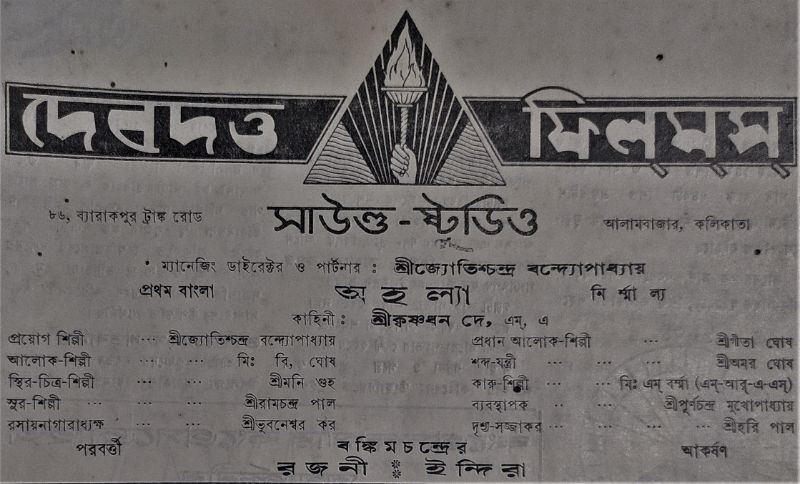 দেবদত্ত ফিল্ম্‌স্
৮৬, ব্যারাকপুর ট্রাঙ্ক রোড সাউণ্ড - ষ্টুডিও আলামবাজার, কলিকাতা
ম্যানেজিং ডাইরেক্টর ও পার্টনার : শ্রীজ্যোতিশচন্দ্র বন্দ্যোপাধ্যায়
প্রথম বাংলা অহল্যা নির্ম্মাল্য
কাহিনী : শ্রীকৃষ্ণধন দে, এম্, এ
প্রয়োগ শিল্পী ... ... শ্রীজ্যোতিশচন্দ্র বন্দ্যোপাধ্যায় প্রধান আলোক-শিল্পী ... শ্রীগীতা ঘোষ
আলোক-শিল্পী ... ... মিঃ বি, ঘোষ শব্দ-যন্ত্রী ... ... শ্রীঅমর ঘোষ
স্থির-চিত্র-শিল্পী ... ... শ্রীমনি গুহ কারু-শিল্পী ... ... মিঃ এম্ বর্ম্মা (এম্-আর্-এ-এস্)
সুর-শিল্পী ... ... শ্রীরামচন্দ্র পাল ব্যবস্থাপক .. ... শ্রীপূর্ণচন্দ্র মুখোপাধ্যায়
রসায়নাগারাধ্যক্ষ ... ... শ্রীভুবনেশ্বর কর দৃশ্য-সজ্জাকর ... ... শ্রীহরি পাল
পরবর্ত্তী বঙ্কিমচন্দ্রের আকর্ষণ
রজনী : ইন্দিরা